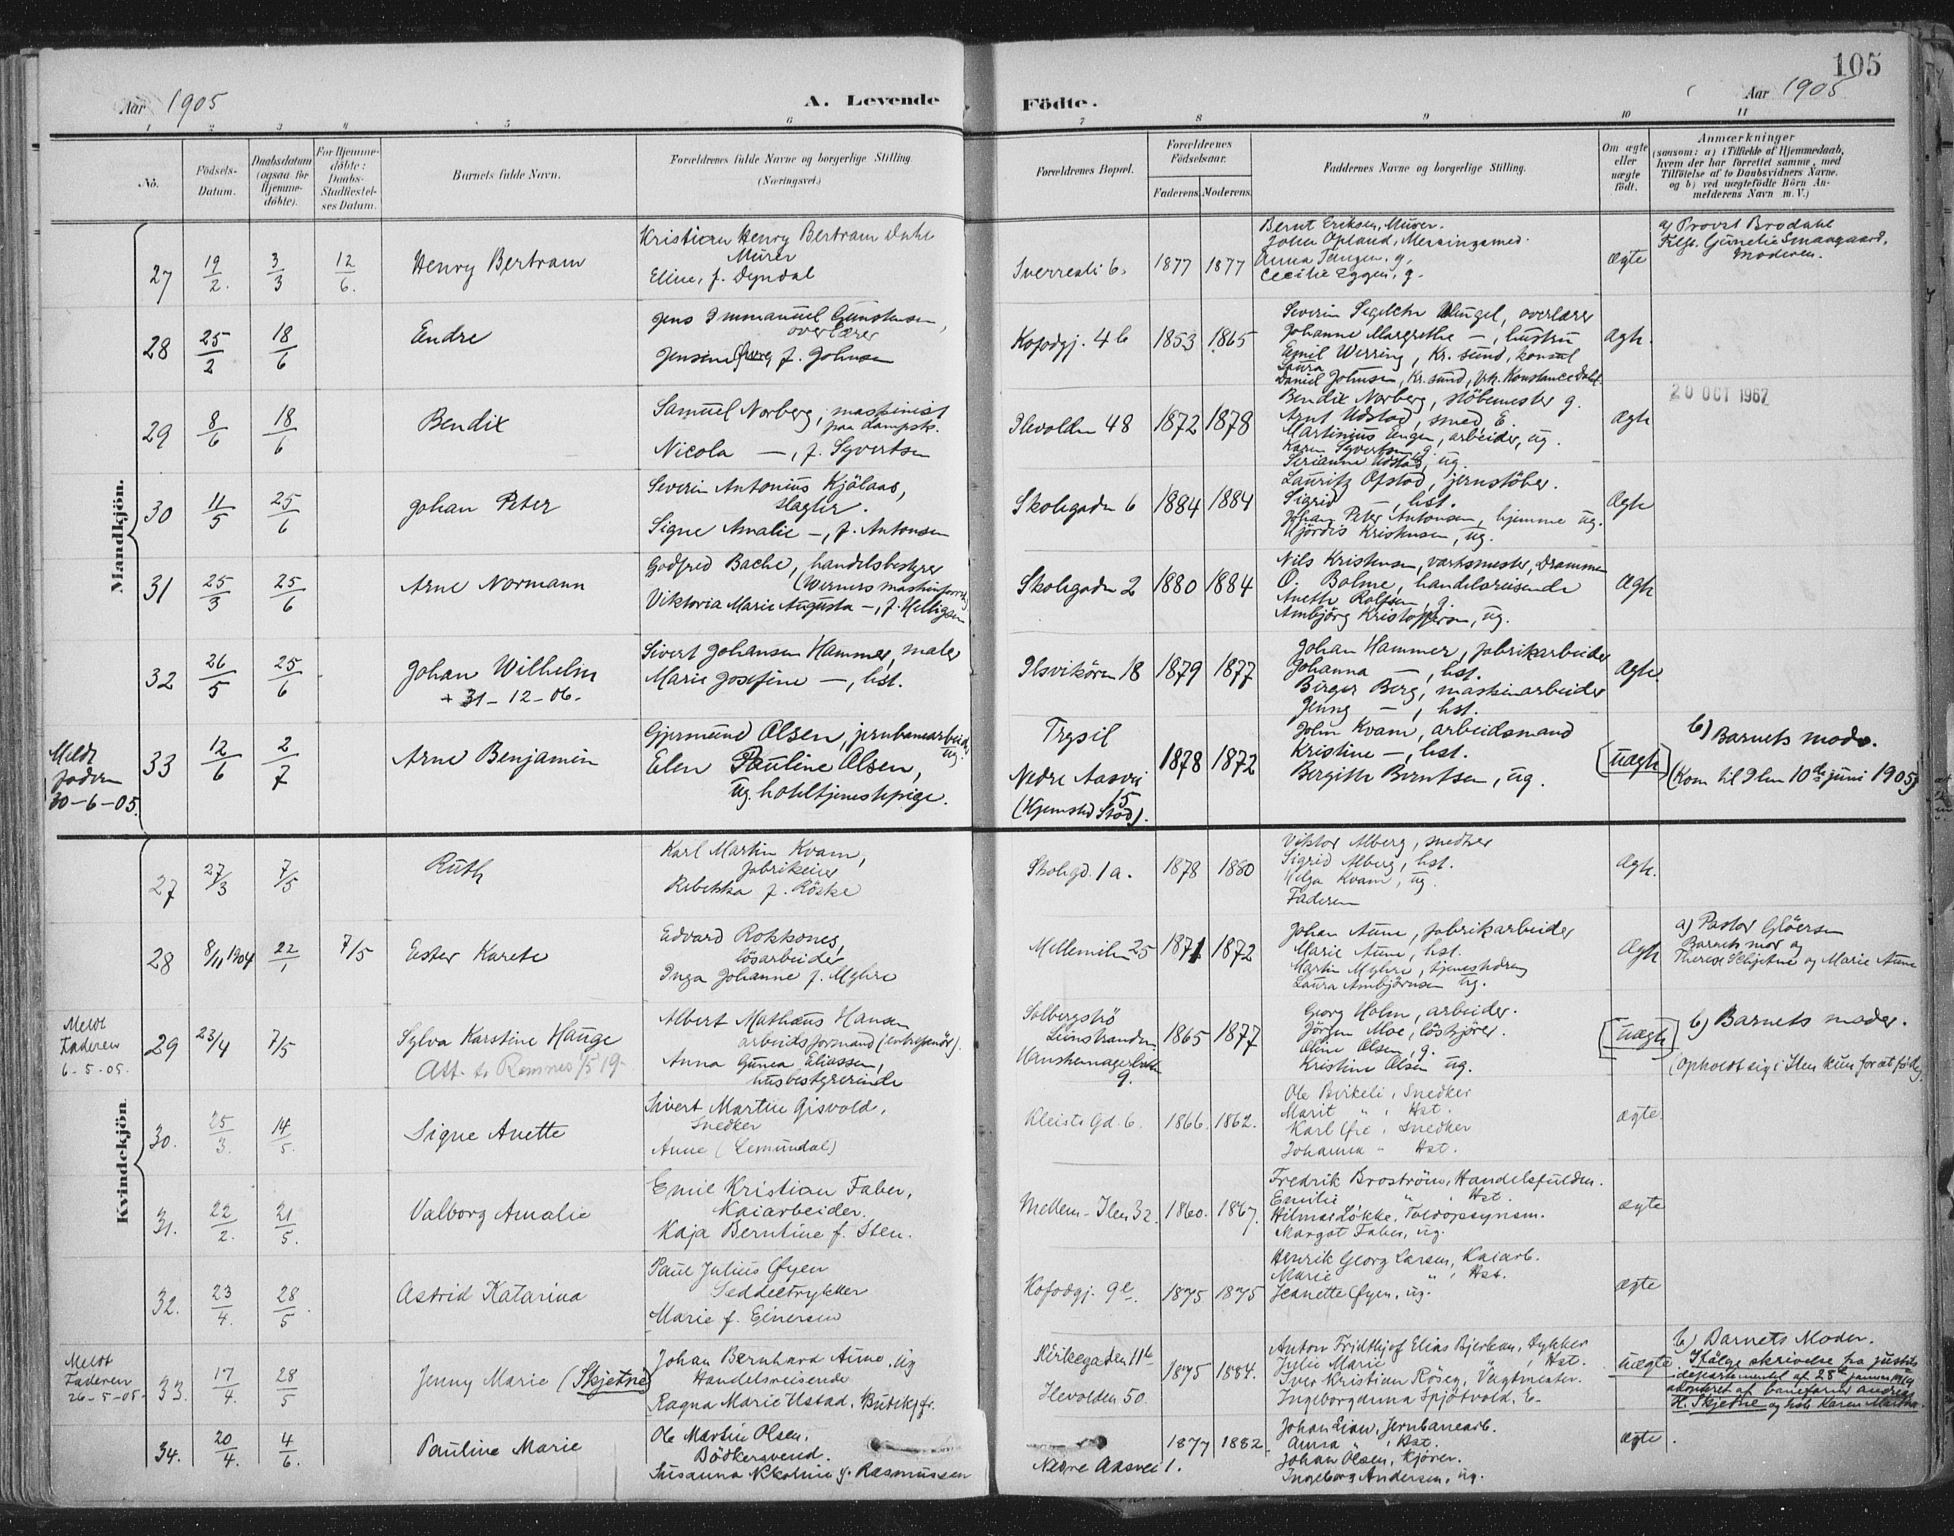 105
Aar 1905
A. Levende
Födte.
Aar 1905
1 2 3 4 5 6 7 8 9 10 11
No.
Födsels-
Datum.
Daabsdatum
(ogsaa for
Hjemme-
döbte).
For Hjemme-
döbte:
Daabs-
Stadfæstel-
ses Datum.
Barnets fulde Navn.
Forældrenes fulde Navne og borgerlige Stilling.
(Næringsvei.)
Forældrenes Bopæl.
Forældrenes
Födselsaar.
Faderens. Moderens.
Faddernes Navne og borgerlige Stilling.
Om ægte
eller
uægte
födt.
Anmærkninger
(saasom: a) i Tilfælde af Hjemmedaab,
hvem der har forrettet samme, med
Tilföielse af to Daabsvidners Navne.
og b) ved uægtefödte Börn An-
melderens Navn m. V.)
Mandkjön.
27 19/2. 3/3 12/6. Henry Bertram
Kristian Henry Bertram Dahl
Murer
Eline, f. Dyndal
Sverresli 6. 1877 1877
Bernt Eriksen, Murer.
Johan Opland, Messingsmed.
Anna Tangen, g.
Cecilie Eggen, g.
ægte
a) Provst Brodahl
Moderen.
28 25/2 18/6 Endre
Jens Immanuel Gunstensen,
overlærer
Jensine f. Johnsen
Kofodgj. 4 b 1853 1865
Severin Segelcke Vangel, overlærer
Johanne Margrethe —, hustru
Emil Werring, Kr. sund, konsul
Laura
Daniel Johnsen, Kr. sund, frk. Konstance Dahl.
Ægte.
20 OCT 1967
29 8/6 18/6 Bendix
Samuel Norberg, maskinist
paa dampsk.
Nicola —, f. Syvertsen
Ilevolden 48 1872 1878
Bendix Norberg, stöbemester g.
Arnt Udstad, smed, E.
Martinius Engen, arbeider, ug.
Karen Syvertsen, g.
Serianne Udstad, ug.
Ægte
30 11/5 25/6 Johan Peter
Severin Antonius Kjölaas,
slagter.
Signe Amalie —, f. Antonsen
Skolegaden 6 1884 1884
Lauritz Ofstad, jernstöber.
Sigrid —, hst.
Johan Peter Antonsen, hjemme ug.
Hjördis Kristensen, ug.
Ægte
31 25/3 25/6 Arne Normann
Godfred Bache, handelsbestyrer
(Werners maskinforretn.)
Viktoria Marie Augusta —, f. Helligsen
Skolegaden 2 1880 1884
Nils Kristensen, værksmester, Drammen
O. Bolme, handelsreisende
Anette Rolfsen, g.
Ambjörg Kristoffersen, ug.
Ægte
32 26/5 25/6 Johan Wilhelm
+ 31-12-06.
Sivert Johansen Hammer, maler
Marie Josefine —, hst.
Ilsvikören 18 1879 1877
Johan Hammer, fabrikarbeider
Johanna —, hst.
Birger Berg, maskinarbeider
Jenny —, hst.
Ægte.
Meldt
faderen
30-6-05.
33 12/6 2/7 Arne Benjamin
Gjermund Olsen, jernbanearbeider
ug.
Elen Pauline Olsen,
ug. hoteltjenestepige.
Trysil
Nedre Aasvei
15
(Hjemsted Stod).
1878 1872
John Kvam, arbeidsmand
Kristine —, hst.
Bergitte Berntsen, ug.
[Uægte]
b) Barnets moder.
(Kom til Ilen 10de juni 1905)
Kvindekjön.
27 27/3 7/5 Ruth
Karl Martin Kvam,
fabrikeier
Rebekka f. Röske
Skolegd. 1 a. 1878 1880
Viktor Alberg, snedker
Sigrid Alberg, hst.
Helga Kvam, ug.
Faderen
Ægte.
28 8/11 1904 22/1 7/5 Ester Karete
Edvard Rokkones,
lösarbeider
Inga Johanne f. Myhre
Mellemilen 25 1871 1872
Johan Aune, fabrikarbeider
Marie Aune, hst.
Martin Myhre, tjenestedreng
Laura Ambjörnsen ug.
Ægte
a) Pastor Glöersen
Barnets mor og
Therese Schjetne og Marie Aune
Meldt
Faderen
6-5-05.
29 23/4 7/5 Sylva Karstine Hauge
Albert Mathæus Hansen
arbeidsformand (entreprenör).
Anna Gunea Eliassen,
husbestyrerinde
Solbergströ
9.
1865 1877
Georg Holm, arbeider.
Jörgen Moe, löskjörer.
Oline Olsen, g.
Kristine Olsen ug.
[Uægte]
b) Barnets moder.
(Opholdt sig i Ilen kun for at föde)
30. 25/3. 14/5. Signe Anette
Sivert Martin Gisvold,
Snedker
Anne (Lemundal)
Kleists Gd. 6. 1866. 1862.
Ole Birkeli, Snedker
Marit " , Hst.
Karl Öie, Snedker
Johanna " Hst.
ægte.
31. 22/2. 21/5. Valborg Amalie
Emil Kristian Faber,
Kaiarbeider.
Kaja Berntine f. Sten.
Mellem-Ilen 32. 1860. 1867.
Fredrik Broström, Handelsfuldm.
Emilie " , Hst.
Hilmar Lökke, Toldopsynsm.
Margot Faber, ug.
ægte
32. 23/4. 28/5. Astrid Katarina
Paul Julius Öyen
Seddeltrykker
Marie f. Einersen
Kofodgj. 9c. 1875 1875
Henrik Georg Larsen, Kaiarb.
Marie " , Hst.
Jeanette Öyen, ug.
ægte
Meldt
Faderen
26-5-05.
33. 17/4 28/5 Jenny Marie (Skjetne)
Johan Bernhard Aune, ug
Handelsreisende
Ragna Marie Ustad, Butikfr.
Kirkegaden 11b
Ilevolden 50.
1875 1884.
Anton Fridthjof Elias Bjerkan, Dykker
Julie Marie , Hst.
Iver Kristian Röseg, Vægtmester.
Ingeborganna Spjötvold, E.
uægte
b) Barnets Moder.
Ifölge skrivelse fra justits-
departementet af 28de januar 1919
adopteret af banefarer Andreas
H. Skjetne og hst. Karen Martha.
34. 20/4. 4/6. Pauline Marie
Ole Martin Olsen.
Bödkersvend.
Susanna Nikoline f. Rasmussen
Nedre Aasvei 1. 1877 1882.
Johan Lian, Jernbanearb.
Anna " , Hst.
Johan Olsen, Kjörer.
Ingeborg Andersen, ug.
ægte.